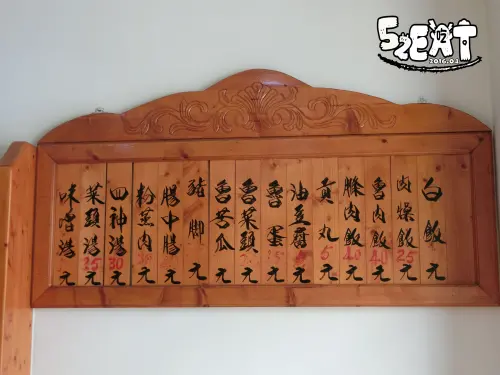 白飯 元
肉燥飯 25 元
魯肉飯 40 元
肉飯 40 元
貢丸 5 元
油豆腐 元
魯蛋 元
魯菜頭 元
魯苦瓜 元
豬腳 元
腸中腸 元
粉蒸肉 元
四神湯 30 元
菜頭湯 25 元
味噌湯 元
52EAT
吃